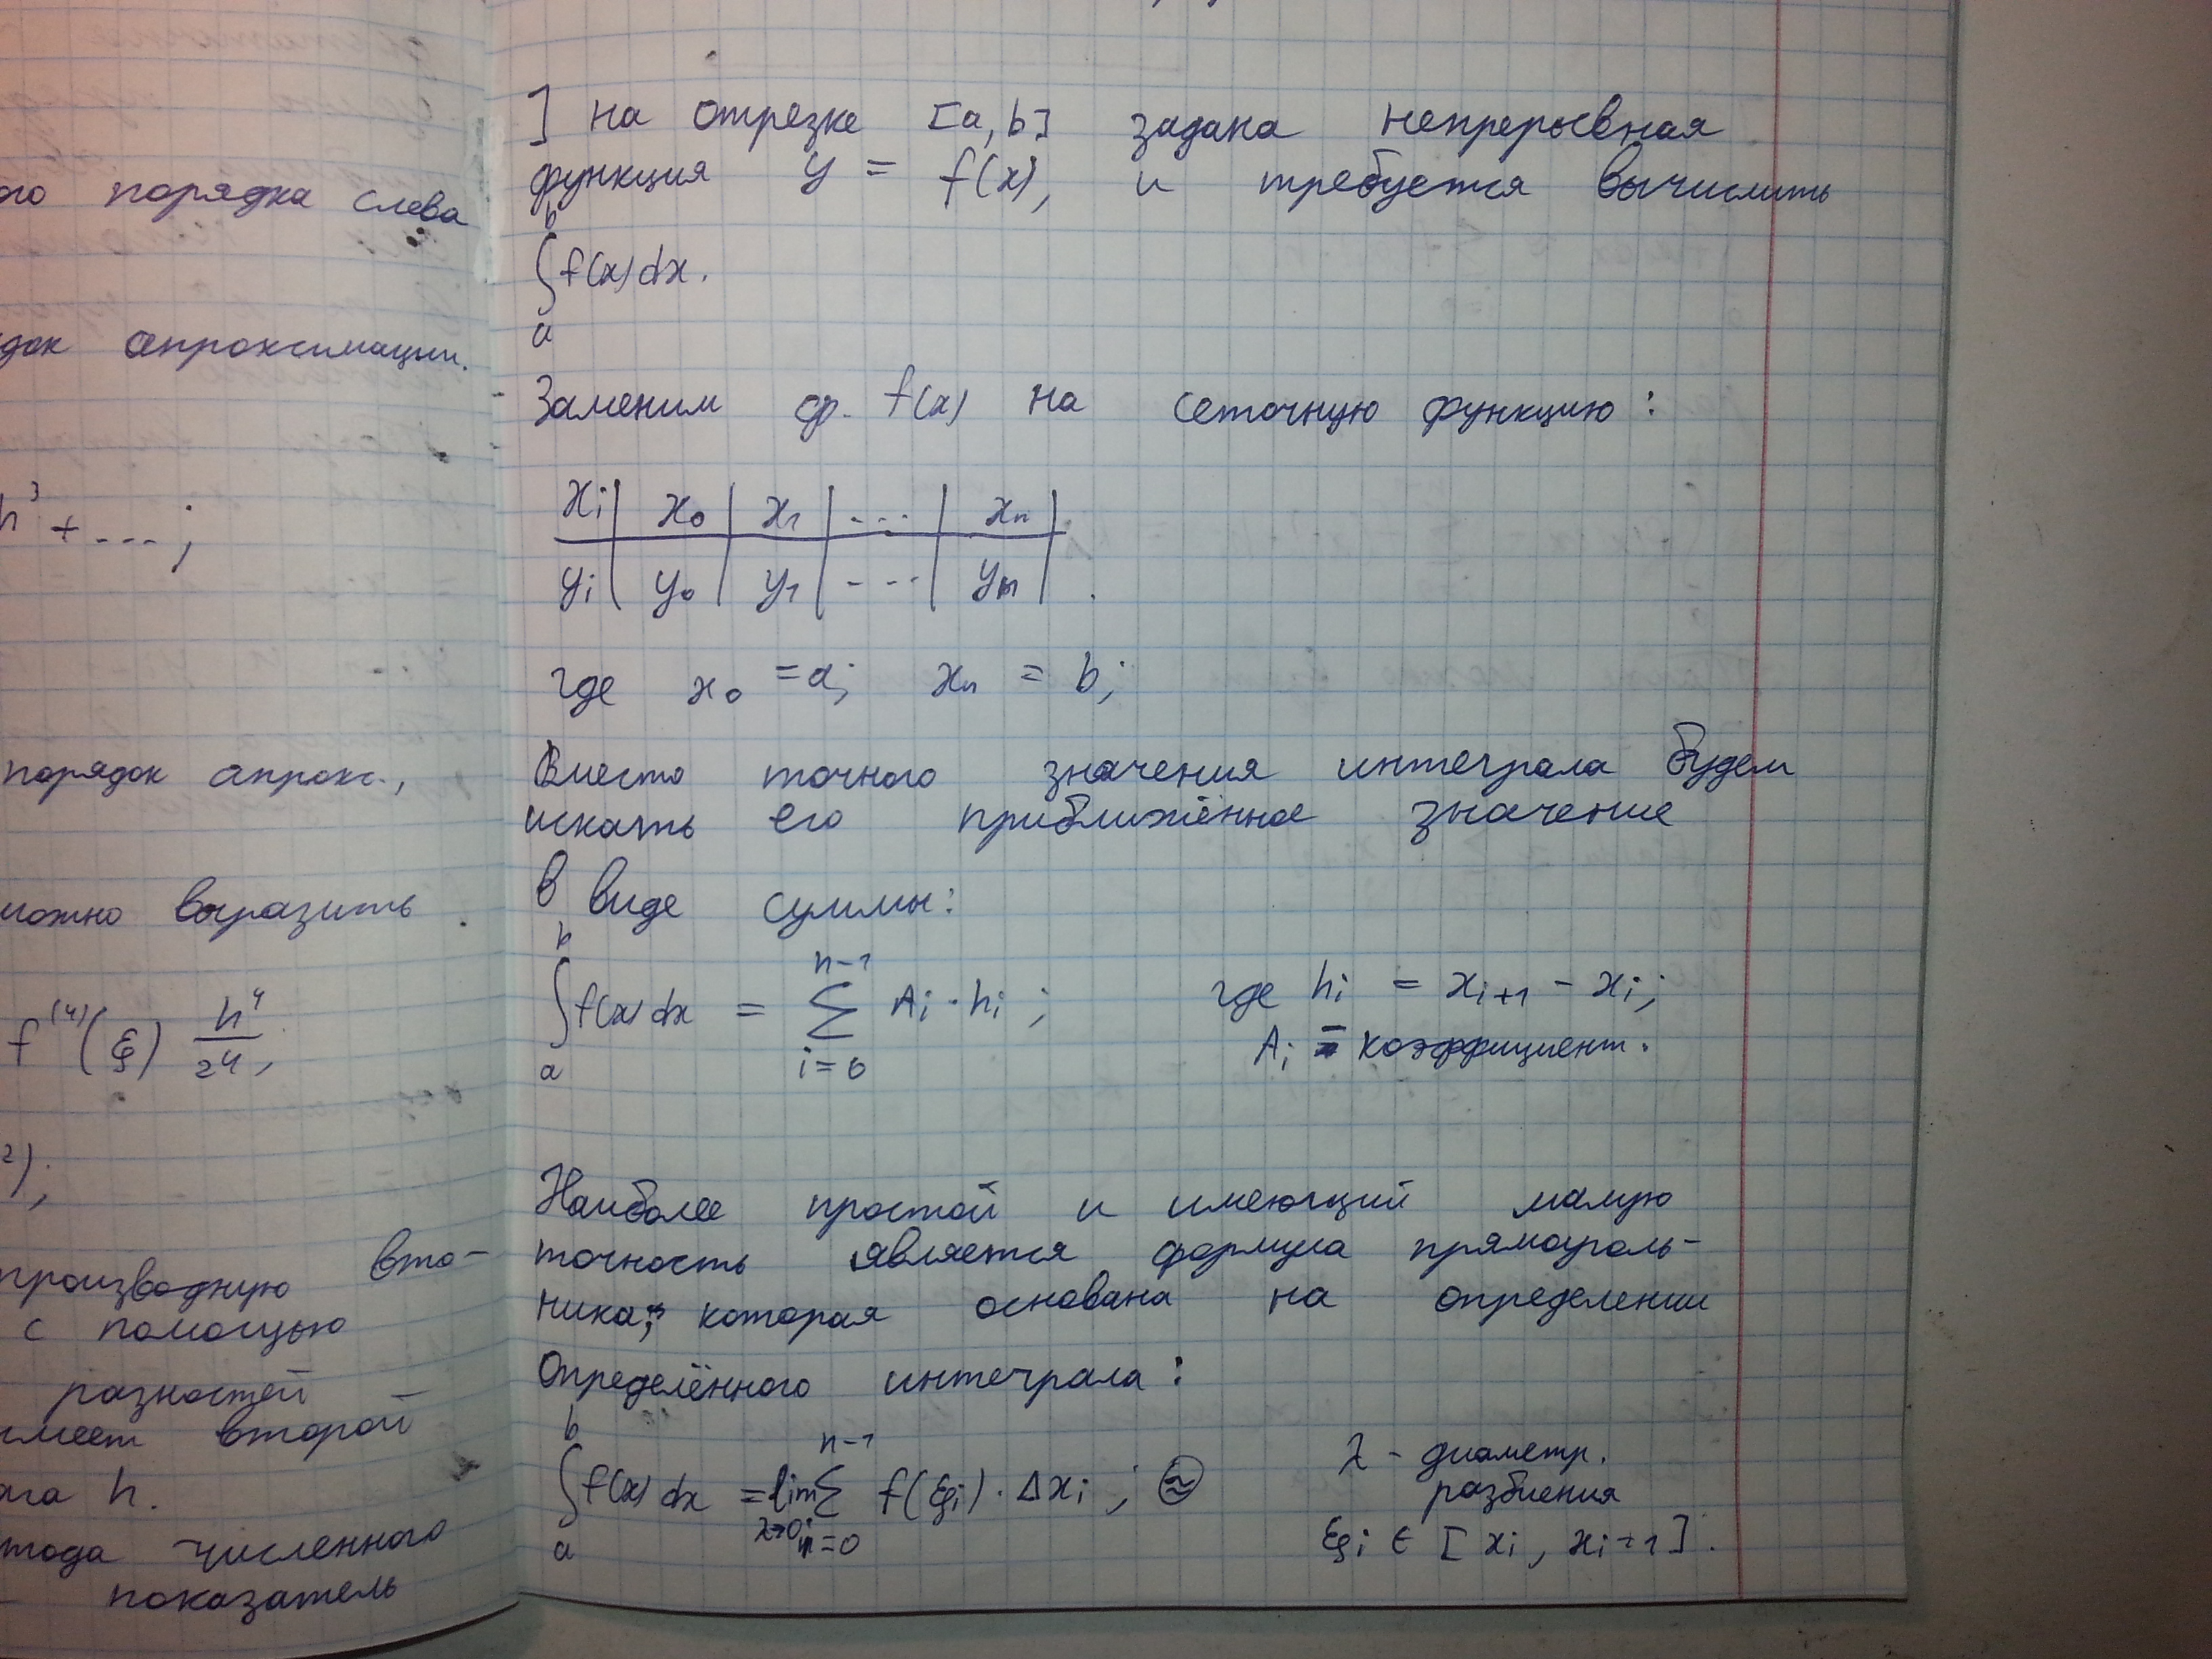 ого порядка слева
док апроксимации.
h³ + ...;
порядок апрокс.,
можно выразить
f⁽⁴⁾(ξ) h⁴/24,
²);
производную вто-
с помощью
разностей –
имеет второй
ага h.
тода численного
показатель
] на отрезке [a, b] задана непрерывная
функция y = f(x), и требуется вычислить
∫ₐᵇ f(x)dx.
Заменим ф. f(x) на сеточную функцию:
xᵢ | x₀ | x₁ | ... | xₙ |
yᵢ | y₀ | y₁ | ... | yₙ | .
где x₀ = a; xₙ = b;
Вместо точного значения интеграла будем
искать его приближённое значение
в виде суммы:
∫ₐᵇ f(x)dx = ∑ᵢ₌₀ⁿ⁻¹ Aᵢ · hᵢ ; где hᵢ = xᵢ₊₁ – xᵢ;
Aᵢ – коэффициент.
Наиболее простой и имеющий малую
точность является формула прямоуголь-
ника, которая основана на определении
определённого интеграла:
∫ₐᵇ f(x)dx = lim λ→0 ∑ᵢ₌₀ⁿ⁻¹ f(ξᵢ) · Δxᵢ ; ≈ λ – диаметр.
разбиения
ξᵢ ∈ [xᵢ, xᵢ₊₁].